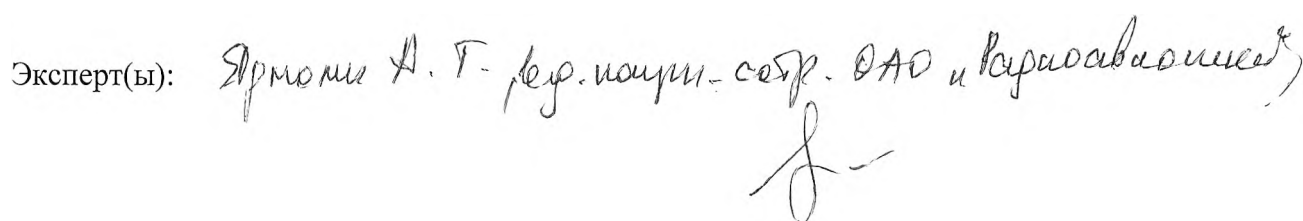 Эксперт(ы): Ярмолич А. Г. вед. научн. сотр. ОАО „Радиоавионика”